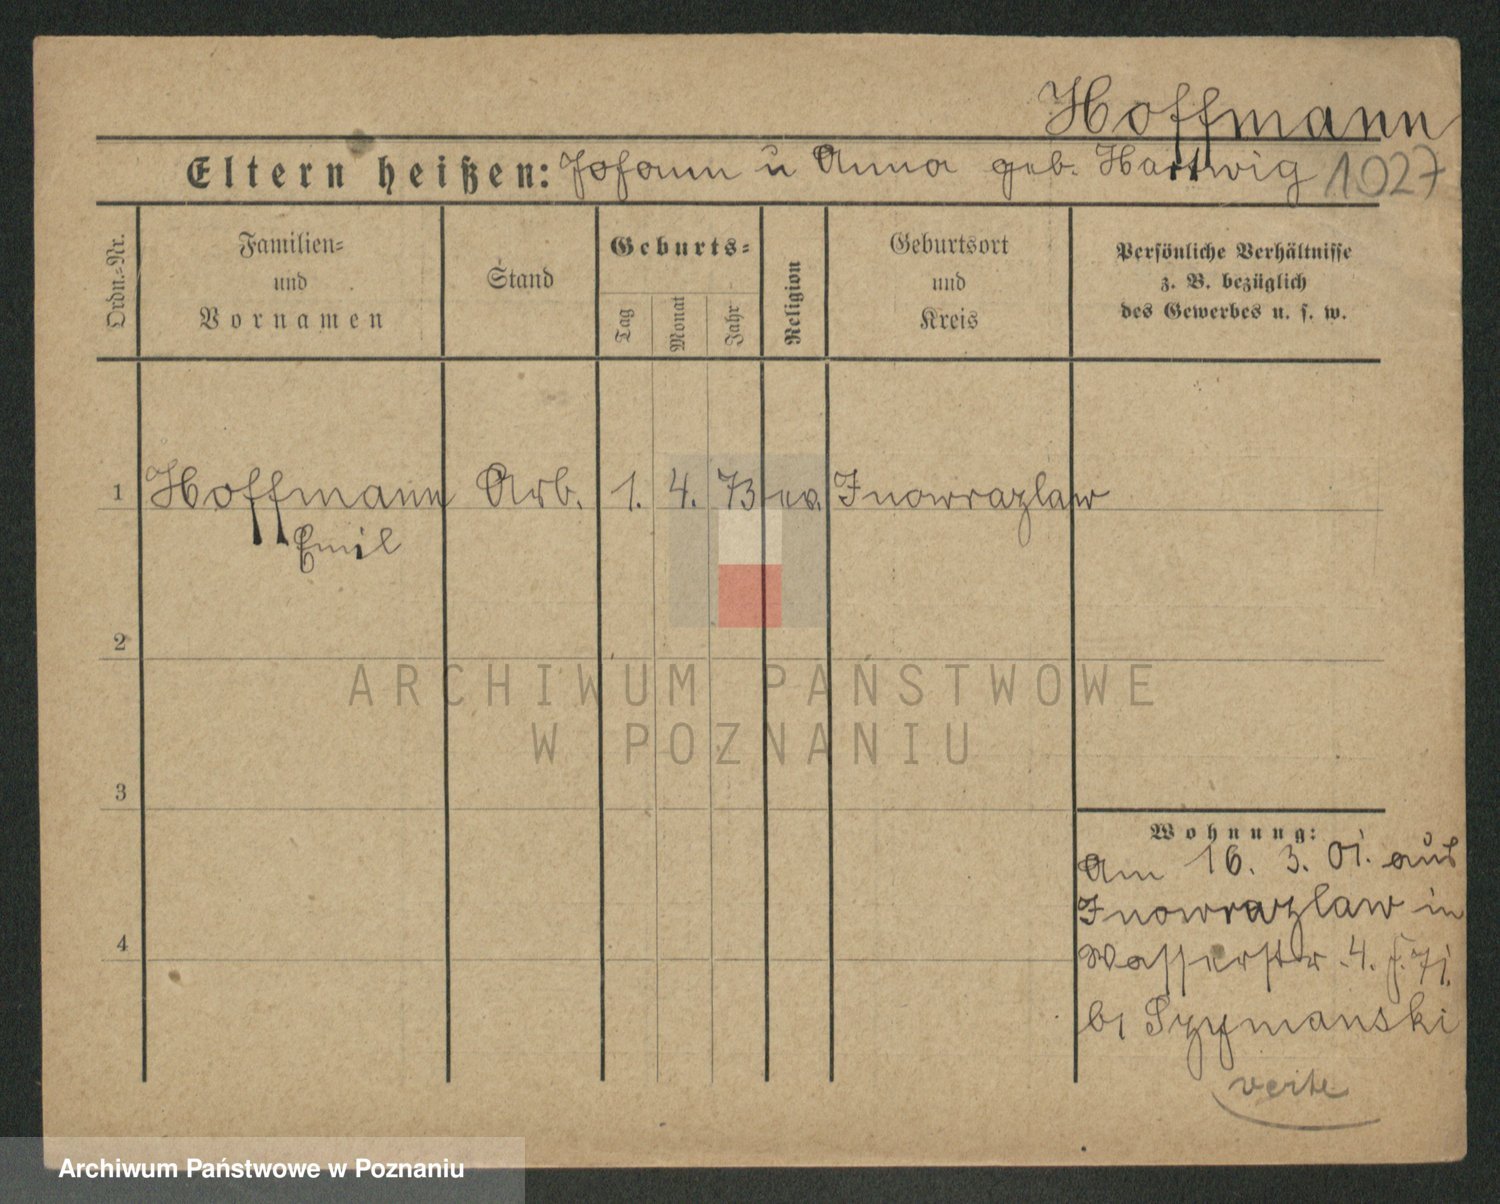 Hoffmann
Eltern heißen: Johann u Anna geb. Hartwig 1027
Ordn.-Nr.
Familien-
und
Vornamen
Stand
Geburts-
Tag
Monat
Jahr
Religion
Geburtsort
und
Kreis
Persönliche Verhältnisse
z. B. bezüglich
des Gewerbes u. s. w.
1 Hoffmann Arb. 1. 4. 73 ev. Inowrazlaw
Emil
2
ARCHIWUM PAŃSTWOWE
W POZNANIU
3
Wohnung:
Am 16. 3. 01. aus
Inowrazlaw in
4
Wasserstr. 4. 71.
bi Szymanski
verte
Archiwum Państwowe w Poznaniu